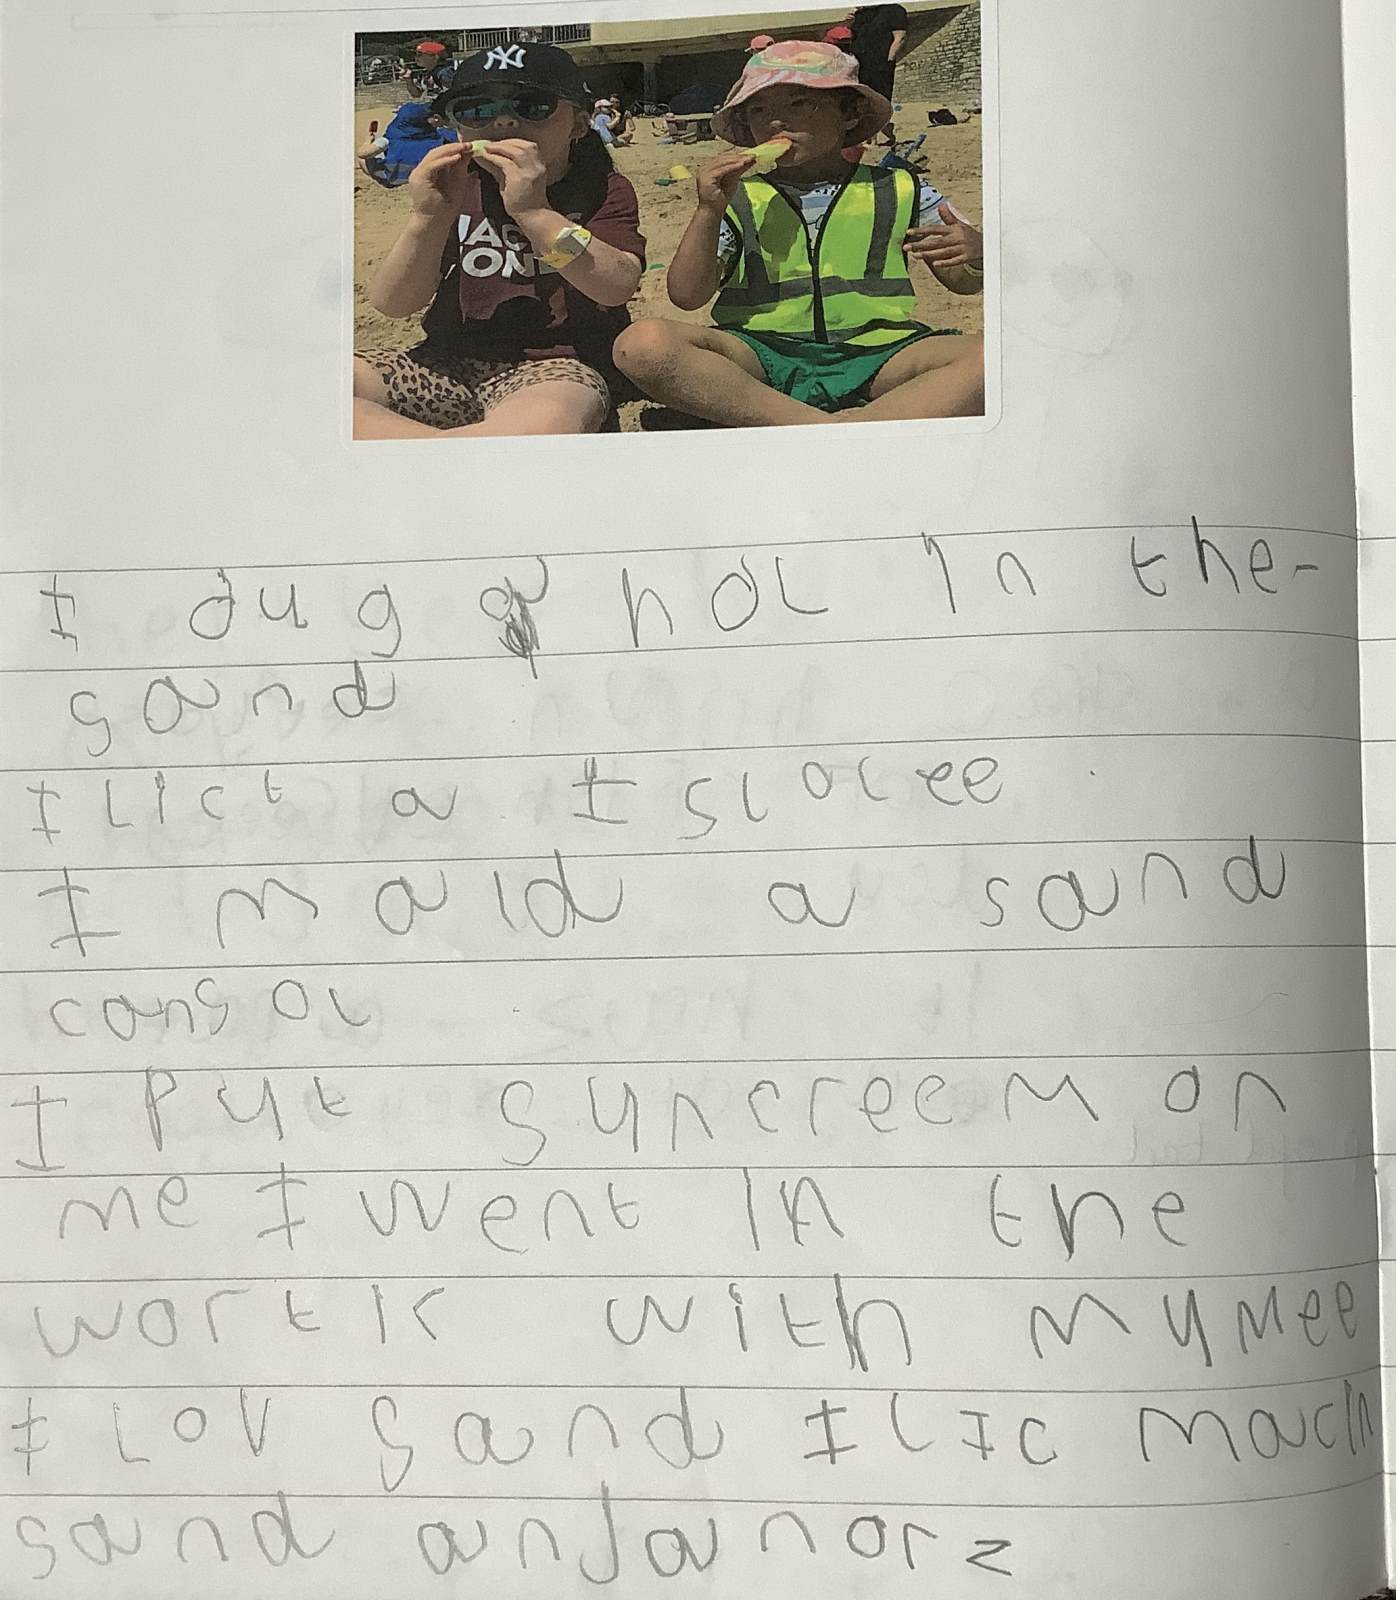 NY
JAC
ON
I dug a hol in the-
sand
I lict a I sloree
I maid a sand
cansol
I put suncreem on
me I went in the
wortr with mymee
I lov sand I lic macin
sand anJanorz